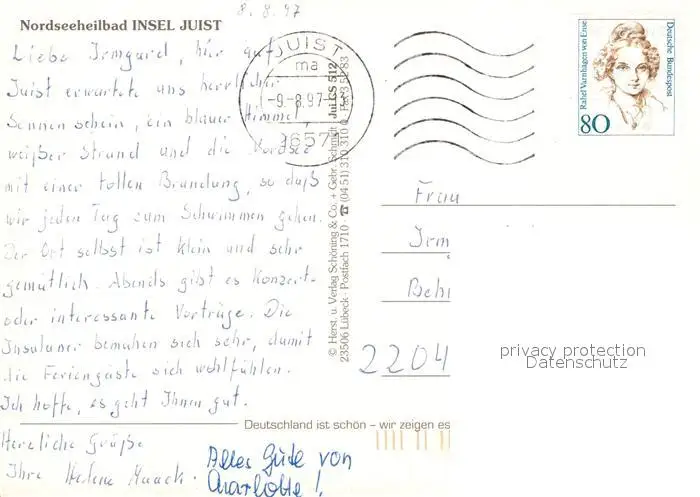 8.8.97
Nordseeheilbad INSEL JUIST
Liebe Irmgard, hier auf
Juist erwartete uns herrlicher
Sonnenschein, ein blauer Himmel
weißer Strand und die Nordsee
mit einer tollen Brandung, so daß
wir jeden Tag zum Schwimmen gehen.
Der Ort selbst ist klein und sehr
gemütlich. Abends gibt es Konzert-
oder interessante Vorträge. Die
Insulaner bemühen sich sehr, damit
die Feriengäste sich wohlfühlen.
Ich hoffe, es geht Ihnen gut.
Herzliche Grüße
Ihre Helene Maack.
Alles Gute von
Charlotte!
JUIST
ma
-9.-8.97-
2657
© Herst. u. Verlag Schöning & Co. + Gebr. Schmidt Jui GS 512
23506 Lübeck · Postfach 1710 · ☎ (04 51) 310 310
Deutschland ist schön – wir zeigen es
Rahel Varnhagen von Ense
Deutsche Bundespost
80
Frau
Irm
Behr
2204
privacy protection
Datenschutz